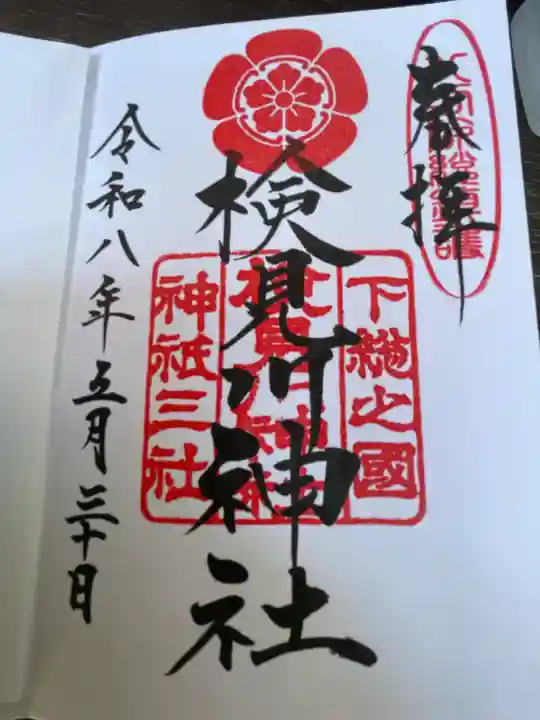 奉拝
下総之國
検見川神社
神祇三社
令和八年五月三十日